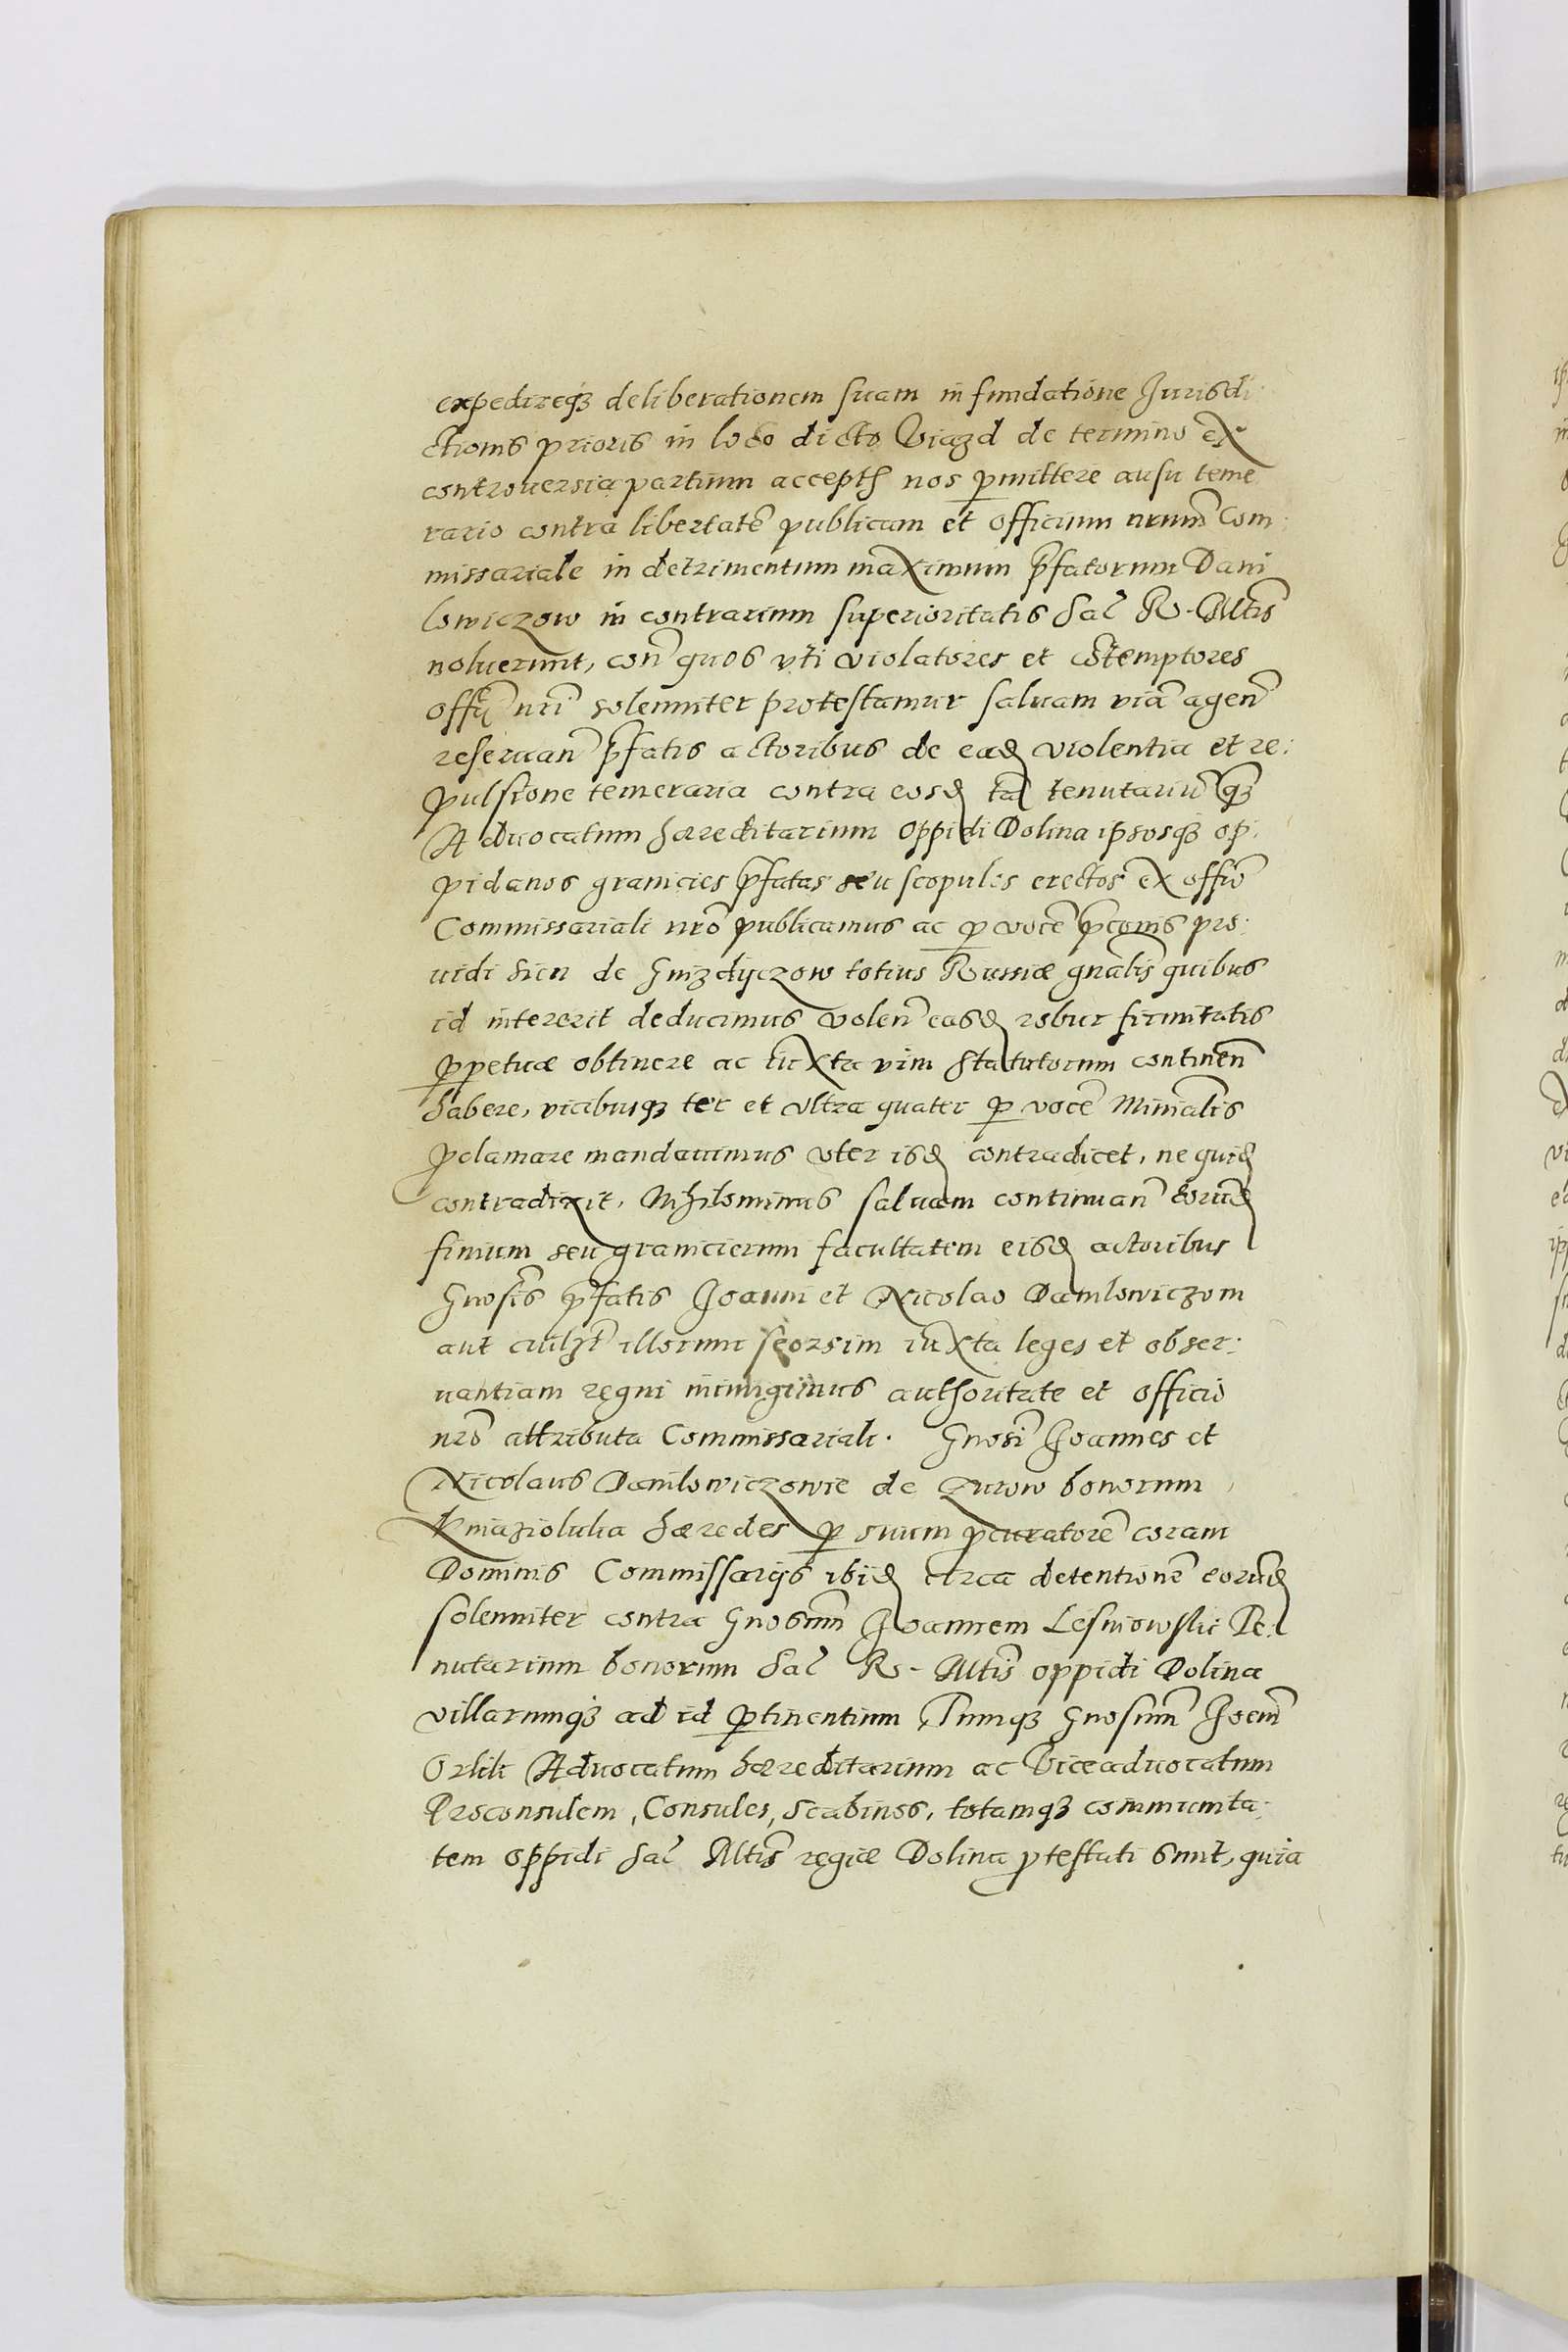 expedireq₃ deliberationem suam in fundatione Jurisdi
ctionis prioris in loco dicto Viazd de termino ex
controuersia partium accept nos pmittere ausu teme
rario contra libertatē publicam et officium nrum̃ Com:
missariale in detrimentum maximum p̃fatorum Dani
lowiczow in contrarium superioritatis Sac̃ R. Mtis̃
noluerunt, con̄ quos vti violatores et cōtemptores
officĩ nrĩ solenniter protestamur saluam viā agen̄
reseruan̄ p̃fatis actoribus de ead violentia et re:
pulsione temeraria contra eosd ta tenutariū q₃
Aduocatum hæreditarium oppidi Dolina ipsosq₃ op:
pidanos granicies p̃fatas seu scopulos erectos ex offiō
Commissariali nrō publicamus ac ꝑ vocē p̃conis pro:
uidi Sien de Hnizdyczow totius Russiæ gnalis̃ quibus
id intererit deducimus volen̄ easd robur firmitatis
ꝑpetuæ obtinere ac iuxta vim statutorum continen̄
habere, vicibusq₃ ter et vltra quater ꝑ vocē Minialis̃
ꝓclamare mandauimus vter isd contradicet, ne quid
contradixit, Nihilominus saluam continuan̄ eorũd
finium seu granicierum facultatem eisd actoribus
Gnosis̃ p̃fatis Joanni et Nicolao Danilowiczom
aut cuilȝt illorum seorsim iuxta leges et obser:
uantiam regni iniungimus authoritate et officio
nrō attributa Commissariali. Gnosĩ Joannes et
Nicolaus Danilowiczowie de Zurow bonorum
Kniaziolulia hæredes ꝑ suum ꝓcuratorē coram
Dominis Commissarijs ibid circa detentionē eorũd
solenniter contra Gnosum̃ Joannem Lesniowski Te:
nutarium bonorum Sac̃ R. Mtis̃ oppidi Dolina
villarumq₃ ad id ꝑtinentium, Tumq₃ Gnosum̃ Joem̃
Orlik Aduocatum hæreditarium ac Viceaduocatum
Proconsulem, Consules, Scabinos, totamq₃ communita:
tem oppidi Sac̃ Mtis̃ regiæ Dolina ꝓtestati sunt, quia